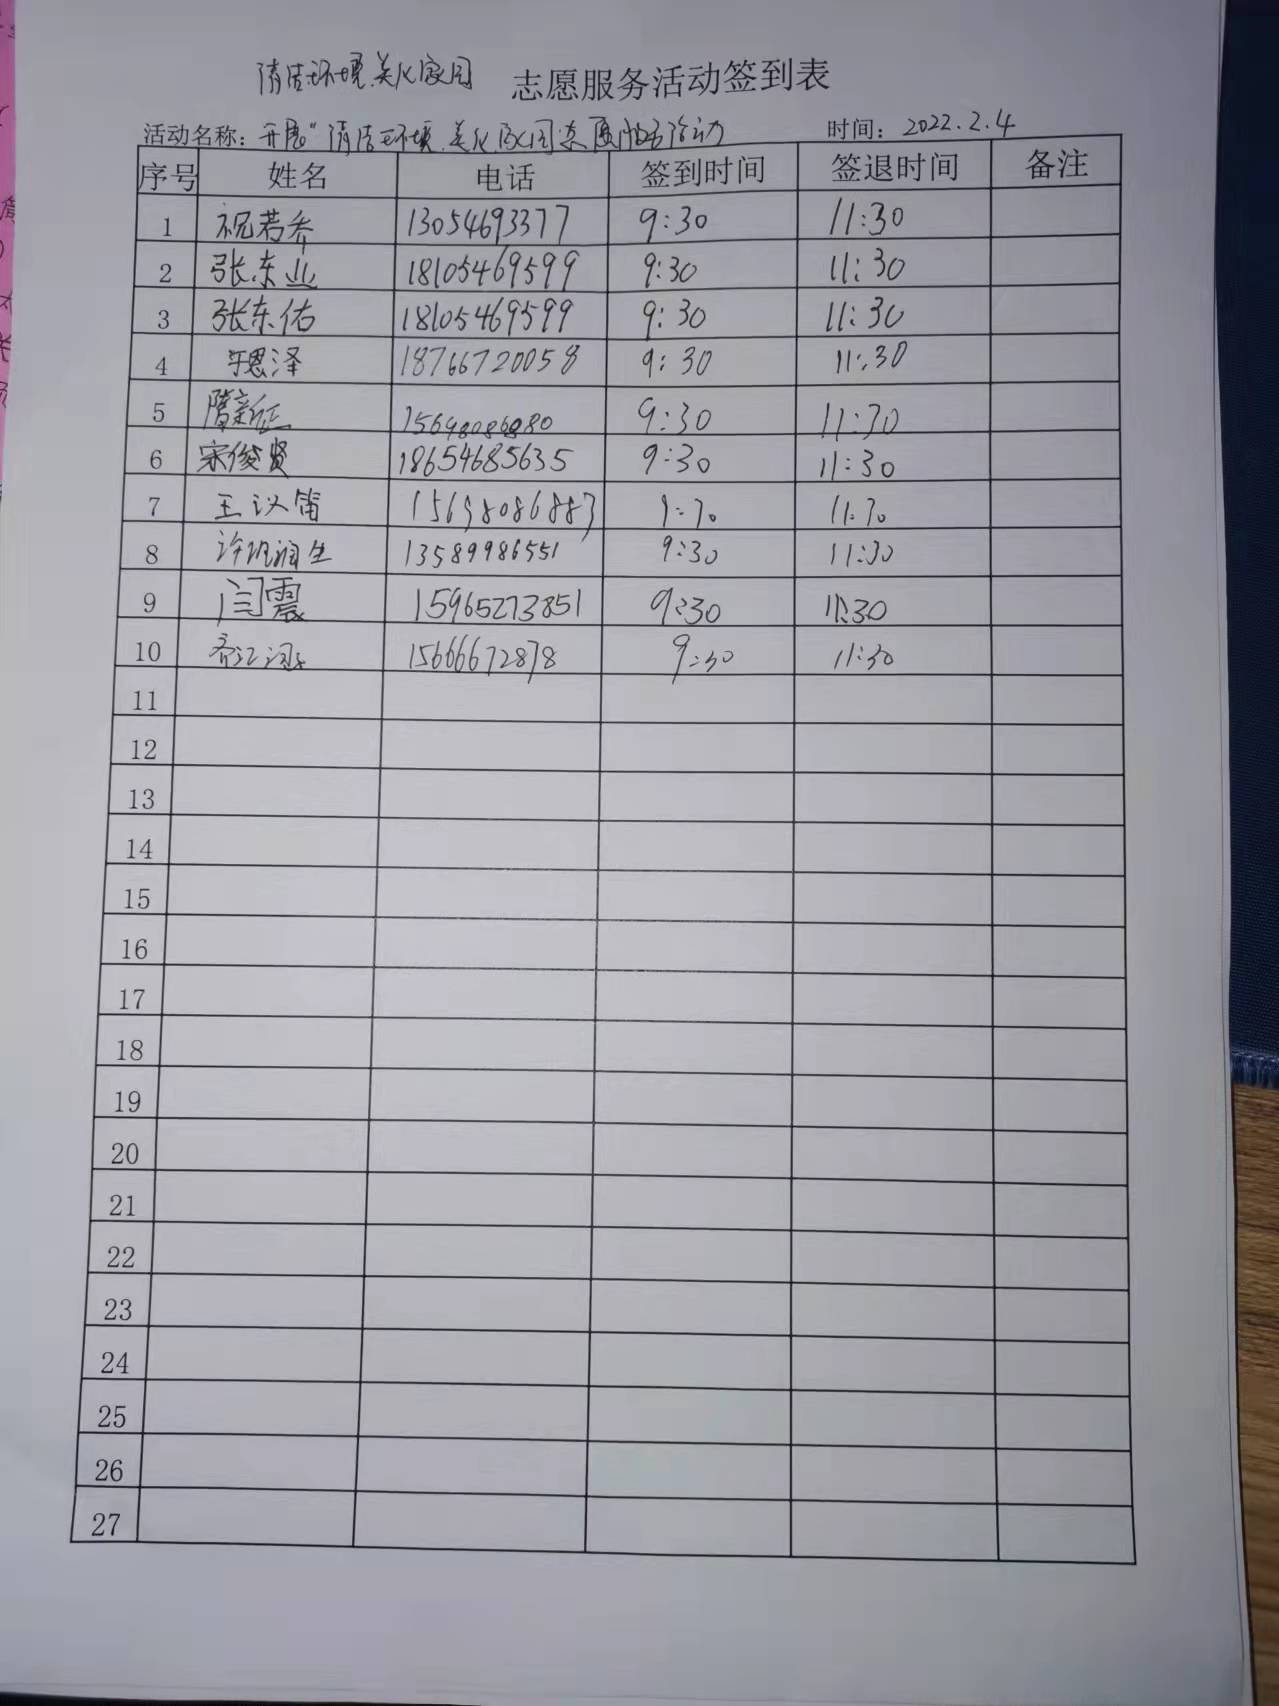 清洁环境、美化家园 志愿服务活动签到表
活动名称：开展“清洁环境、美化家园志愿服务活动 时间：2022.2.4
序号 姓名 电话 签到时间 签退时间 备注
1 祝若乔 13054693377 9:30 11:30
2 张东业 18105469599 9:30 11:30
3 张东佑 18105469599 9:30 11:30
4 于恩泽 18766720058 9:30 11:30
5 隋新征 15698086880 9:30 11:30
6 宋俊贤 18654685635 9:30 11:30
7 王议笛 15698086883 9:30 11:30
8 13589986551 9:30 11:30
9 闫震 15965273851 9:30 11:30
10 15666672878 9:30 11:30
11
12
13
14
15
16
17
18
19
20
21
22
23
24
25
26
27